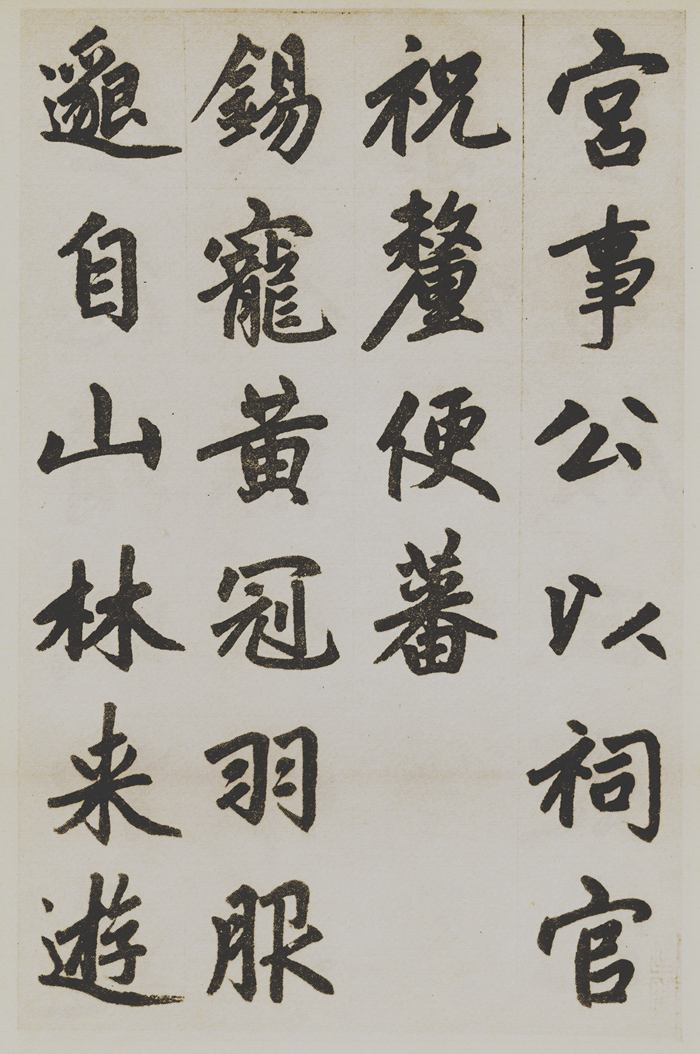 宮事公以祠官
祝釐便蕃
錫寵黃冠羽服
邈自山林来遊